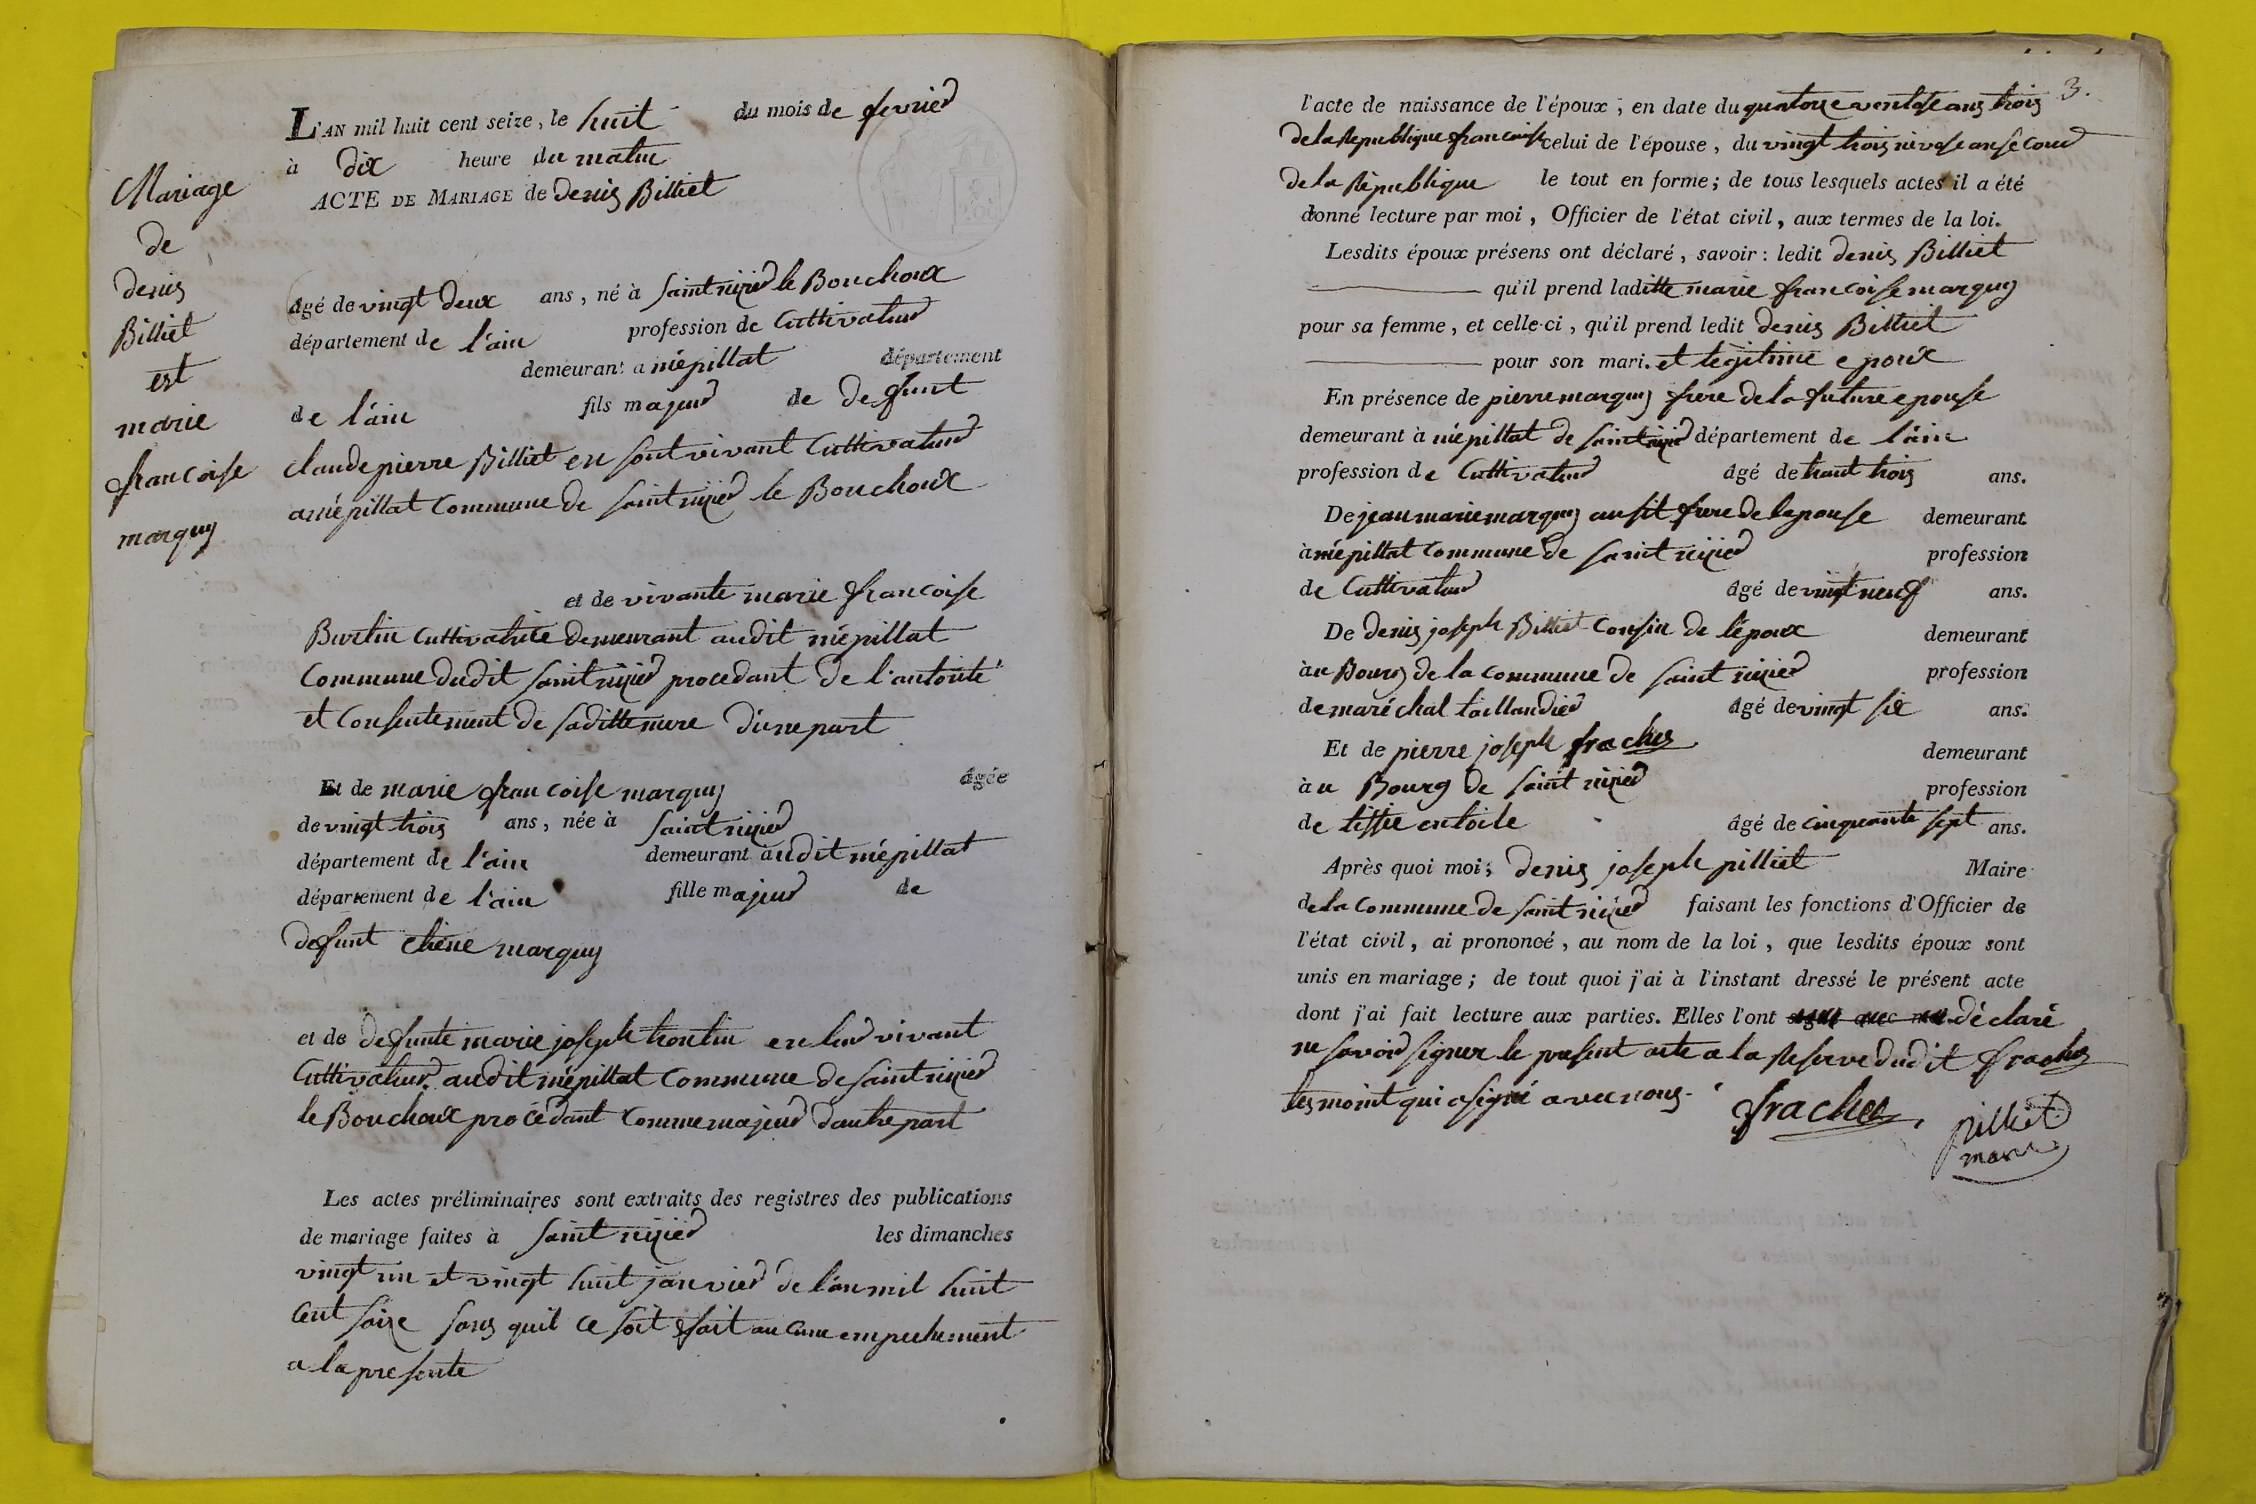 Mariage
de
denis
Billiet
est
marie
francoise
marquis
L'AN mil huit cent seize, le huit du mois de fevrier
à dix heure du matin
ACTE DE MARIAGE de denis Billiet
âgé de vingt deux ans, né à saint nizier le Bouchoux
département de l'ain profession de Cultivateur
demeurant a mépillat département
de l'ain fils majeur de defunt
claude pierre Billiet en sont vivant Cultivateur
a mépillat Commune de saint nizier le Bouchoux
et de vivante marie francoise
Burtin Cultivatrice demeurant audit mépillat
Commune dudit saint nizier procedant de l'autorité
et Consentement de saditte mere d'une part
Et de marie francoise marquis âgée
de vingt trois ans, née à saint nizier
département de l'ain demeurant audit mépillat
département de l'ain fille majeur de
defunt marquis
et de defunte marie joseph en leur vivant
Cultivateur audit mépillat Commune de saint nizier
le Bouchoux procédant Comme majeur dautre part
Les actes préliminaires sont extraits des registres des publications
de mariage faites à saint nizier les dimanches
vingt un et vingt huit janvier de l'an mil huit
cent saize sans quil ce soit fait aucune empechement
a la presente
3.
l'acte de naissance de l'époux, en date du quatorze ventose ans trois
de la Republique francoise celui de l'épouse, du vingt trois nivose an second
de la République le tout en forme; de tous lesquels actes il a été
donné lecture par moi, Officier de l'état civil, aux termes de la loi.
Lesdits époux présens ont déclaré, savoir: ledit denis Billiet
qu'il prend laditte marie francoise marquis
pour sa femme, et celle-ci, qu'il prend ledit denis Billiet
pour son mari. et légitime epoux
En présence de pierre marquis frere de la future epouse
demeurant à mépillat de saint nizier département de l'ain
profession de Cultivateur âgé de trant trois ans.
De jean marie marquis ausit frere de lepouse demeurant
à mépillat Commune de saint nizier profession
de Cultivateur âgé de vingt neuf ans.
De denis joseph Billiet Cousin de l'époux demeurant
àu Bourg de la Commune de saint nizier profession
de maréchal taillandier âgé de vingt six ans.
Et de pierre joseph frachet demeurant
àu Bourg de saint nizier profession
de tissie en toile âgé de cinquante sept ans.
Après quoi moi, denis joseph pilliet Maire
de la Commune de saint nizier faisant les fonctions d'Officier de
l'état civil, ai prononcé, au nom de la loi, que lesdits époux sont
unis en mariage; de tout quoi j'ai à l'instant dressé le présent acte
dont j'ai fait lecture aux parties. Elles l'ont signé avec moi déclaré
ne savoir signer le present acte a la Reserve dudit frachet
tesmoint qui a signé avec nous.
frachet
pilliet
maire